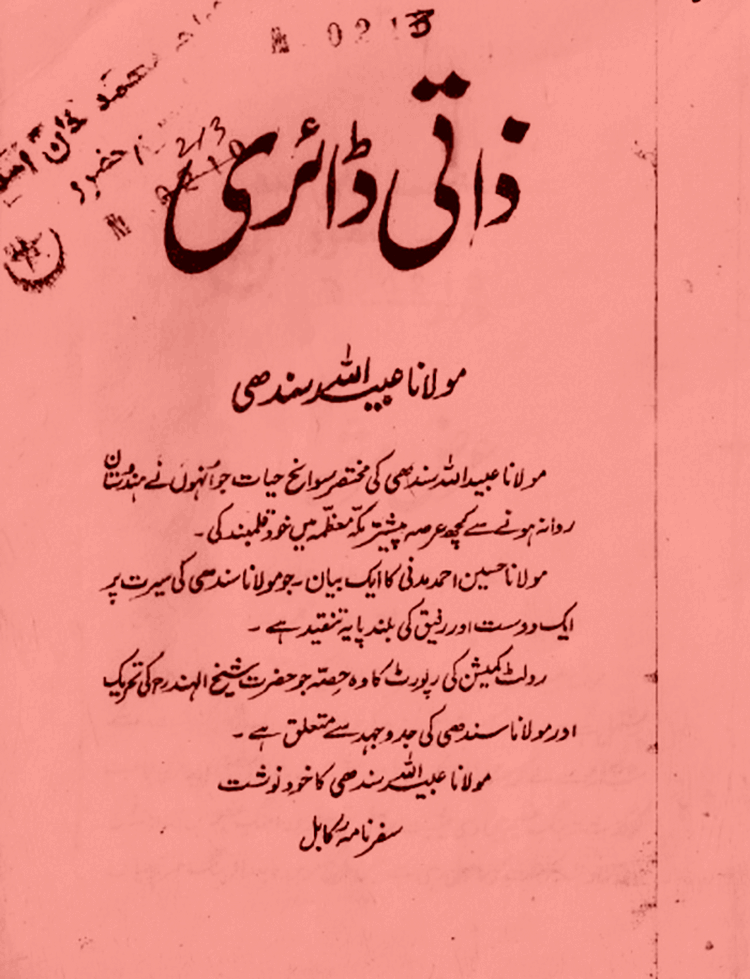 № 0213
محمد خان
حضور
213
№
ذاتی ڈائری
مولانا عبید اللہ سندھی
مولانا عبید اللہ سندھی کی مختصر سوانح حیات جو انہوں نے ہندوستان
روانہ ہونے سے کچھ عرصہ پیشتر مکّہ معظّمہ میں خود قلمبند کی ۔
مولانا حسین احمد مدنی کا ایک بیان ۔ جو مولانا سندھی کی سیرت پر
ایک دوست اور رفیق کی بلند پایہ تنقید ہے ۔
رولٹ کمیشن کی رپورٹ کا وہ حصّہ جو حضرت شیخ الہندؒ کی تحریک
اور مولانا سندھی کی جدوجہد سے متعلق ہے ۔
مولانا عبید اللہ سندھی کا خود نوشت
سفرنامہ کابل